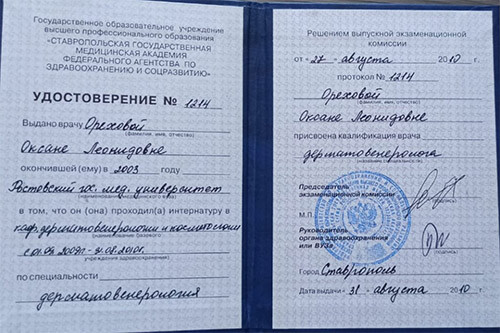 Государственное образовательное учреждение
высшего профессионального образования
«СТАВРОПОЛЬСКАЯ ГОСУДАРСТВЕННАЯ
МЕДИЦИНСКАЯ АКАДЕМИЯ
ФЕДЕРАЛЬНОГО АГЕНТСТВА ПО
ЗДРАВООХРАНЕНИЮ И СОЦРАЗВИТИЮ»
УДОСТОВЕРЕНИЕ № 1214
Выдано врачу Ореховой
(фамилия, имя, отчество)
Оксане Леонидовне
окончившей (ему) в 2003 году
Ростовский гос. мед. университет
в том, что он (она) проходил(а) интернатуру в
каф. дерматовенерологии и косметологии
учреждения здравоохранения)
по специальности
дерматовенерология
Решением выпускной экзаменационной
комиссии
от «27» августа 2010 г.
протокол № 1214
Ореховой
(фамилия, имя, отчество)
Оксане Леонидовне
присвоена квалификация врача
дерматовенеролога
Председатель
экзаменационной комиссии
(подпись)
М.П.
Руководитель
органа здравоохранения
или ВУЗа
(подпись)
Город Ставрополь
Дата выдачи «31» августа 2010 г.